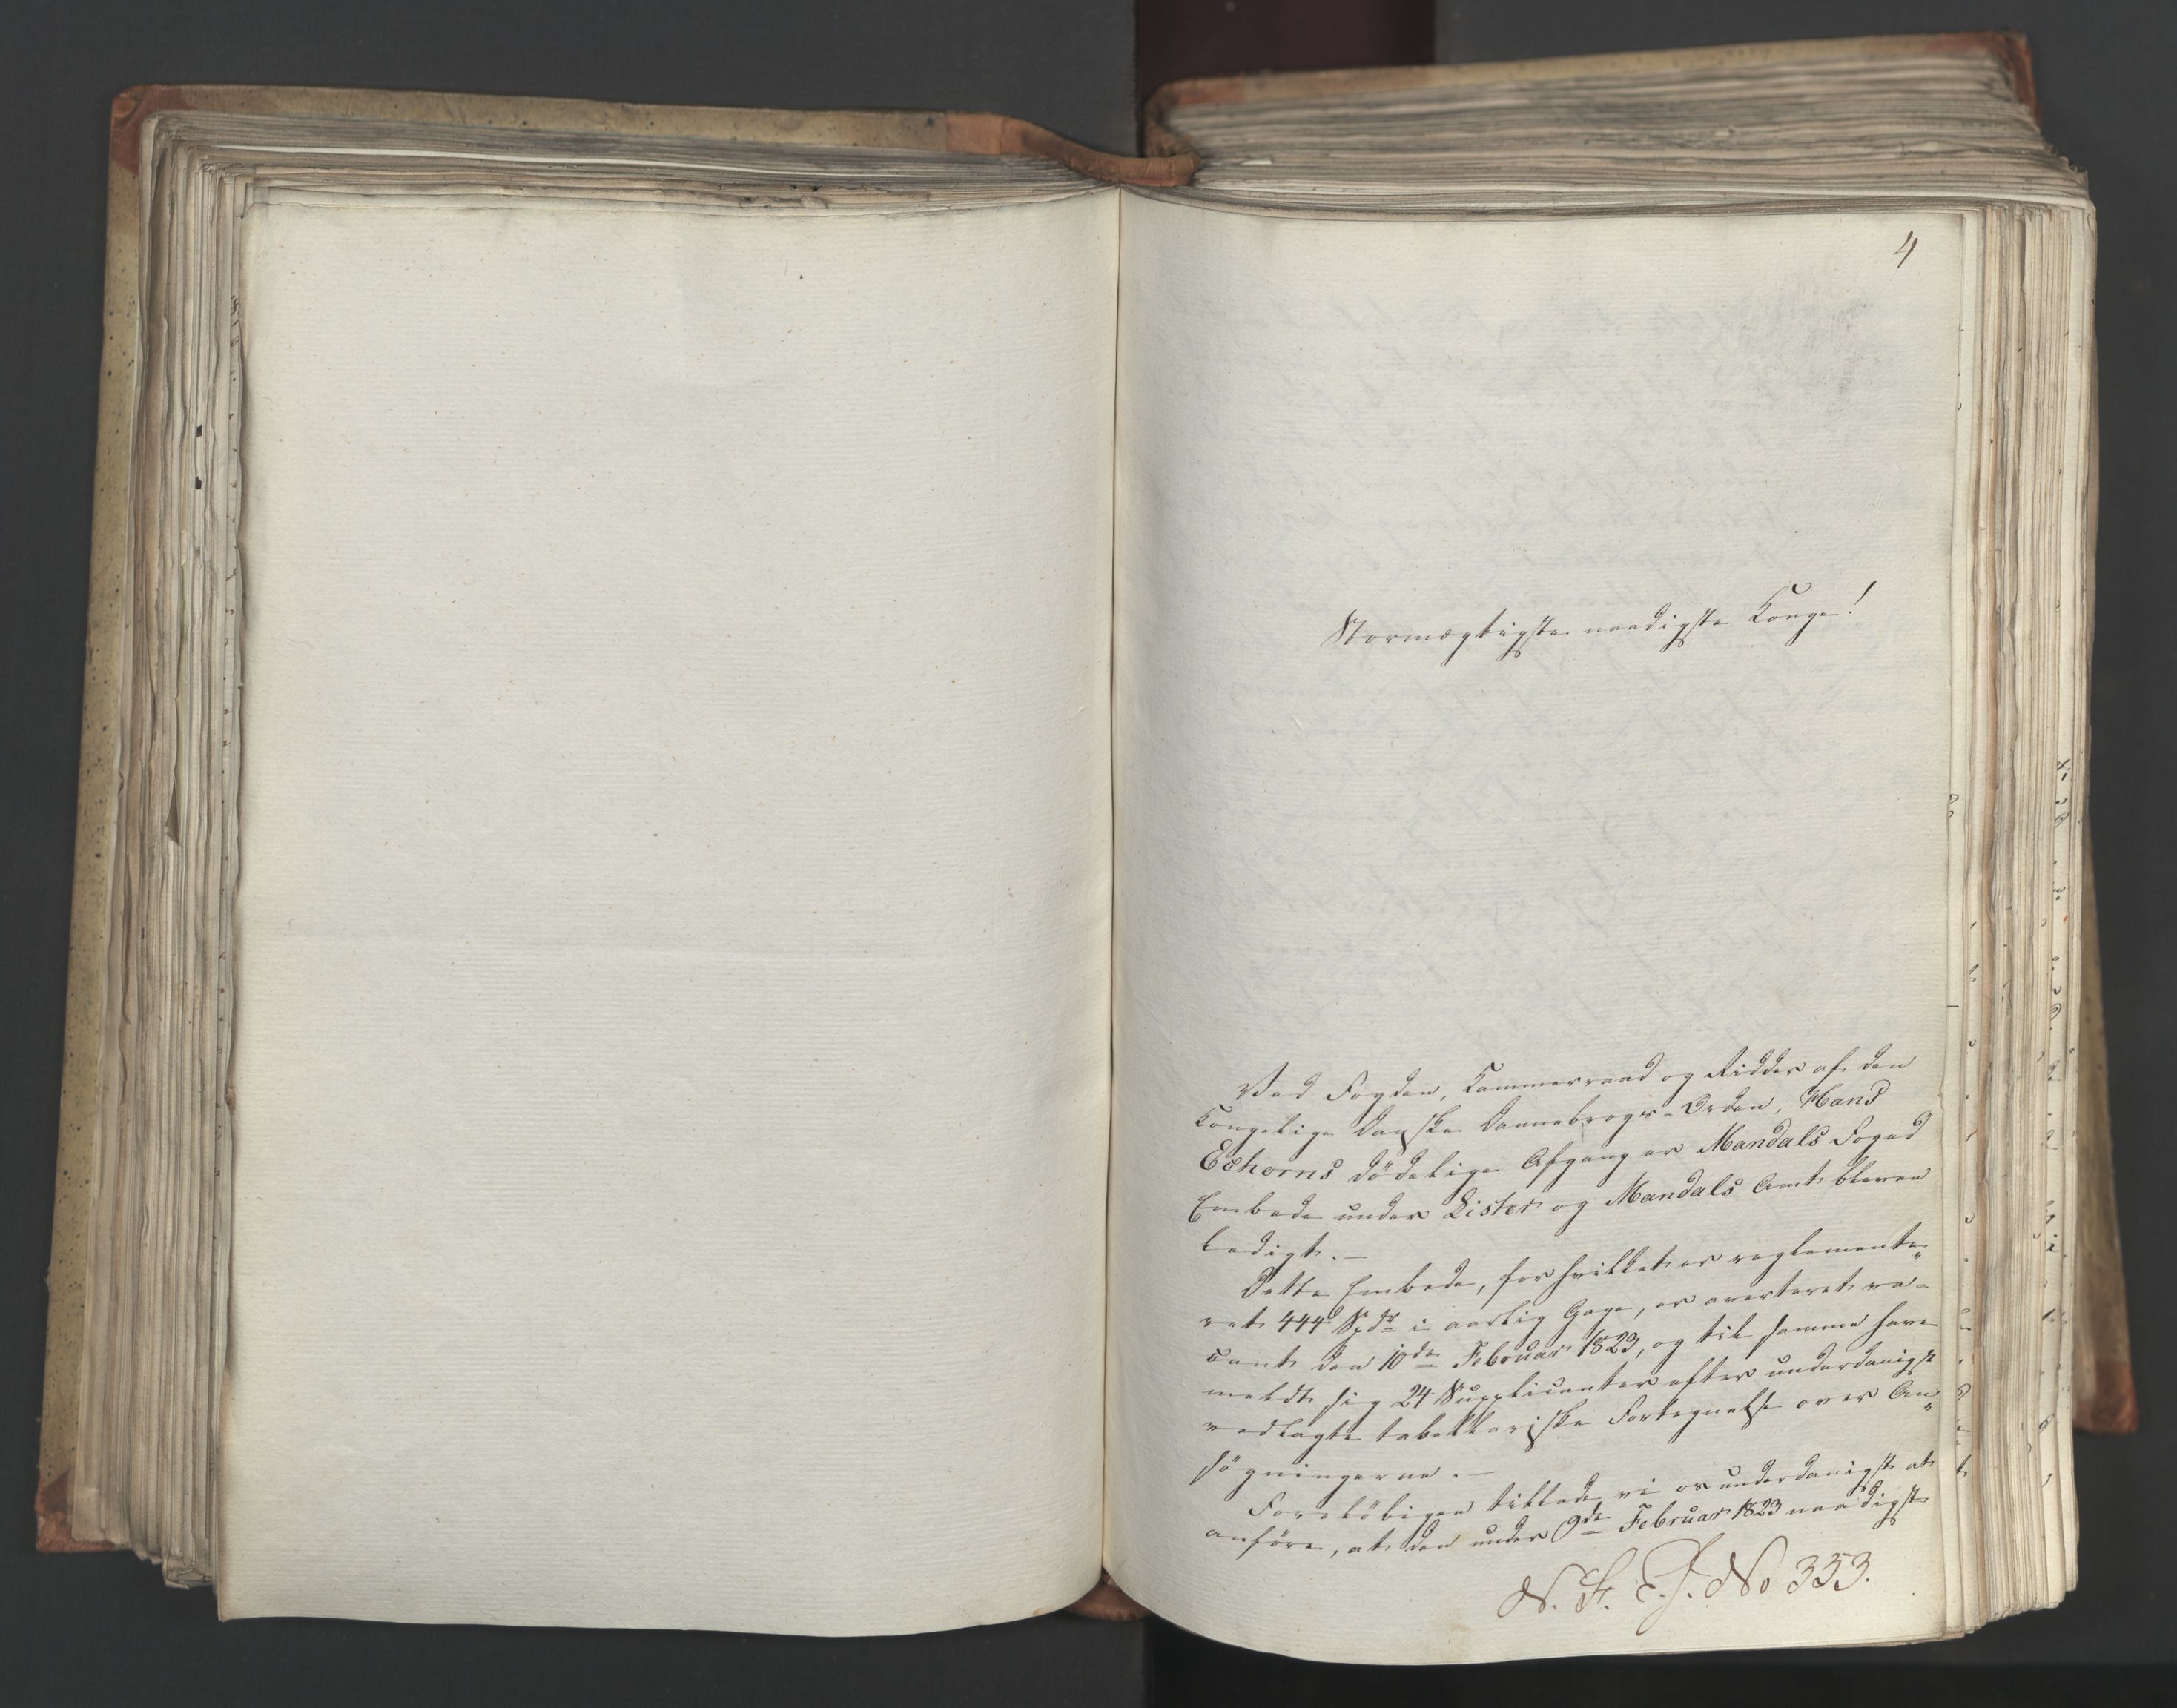 4
Stormægtigste naadigste Konge!
Ved Fogden, Kammerraad og Ridder af den
Kongelige Danske Dannebrogs-Orden, Hans
Eshorns dödelige Afgang er Mandals Foged
Embede under Lister og Mandals Amt bleven
ledigt.—
Dette Embede, for hvilket er reglemente„
ret 444 Spdr i aarlig Gage, er averteret va-
cant den 10de Februar 1823, og til samme have
meldt sig 24 Supplicanter efter underdanigst
vedlagte tabellariske Fortegnelse over An„
sögningerne.—
Forelöbigen tillade vi os underdanigst at
anföre, at den under 9de Februar 1823 naadigst
N. St. E. J. No 353.